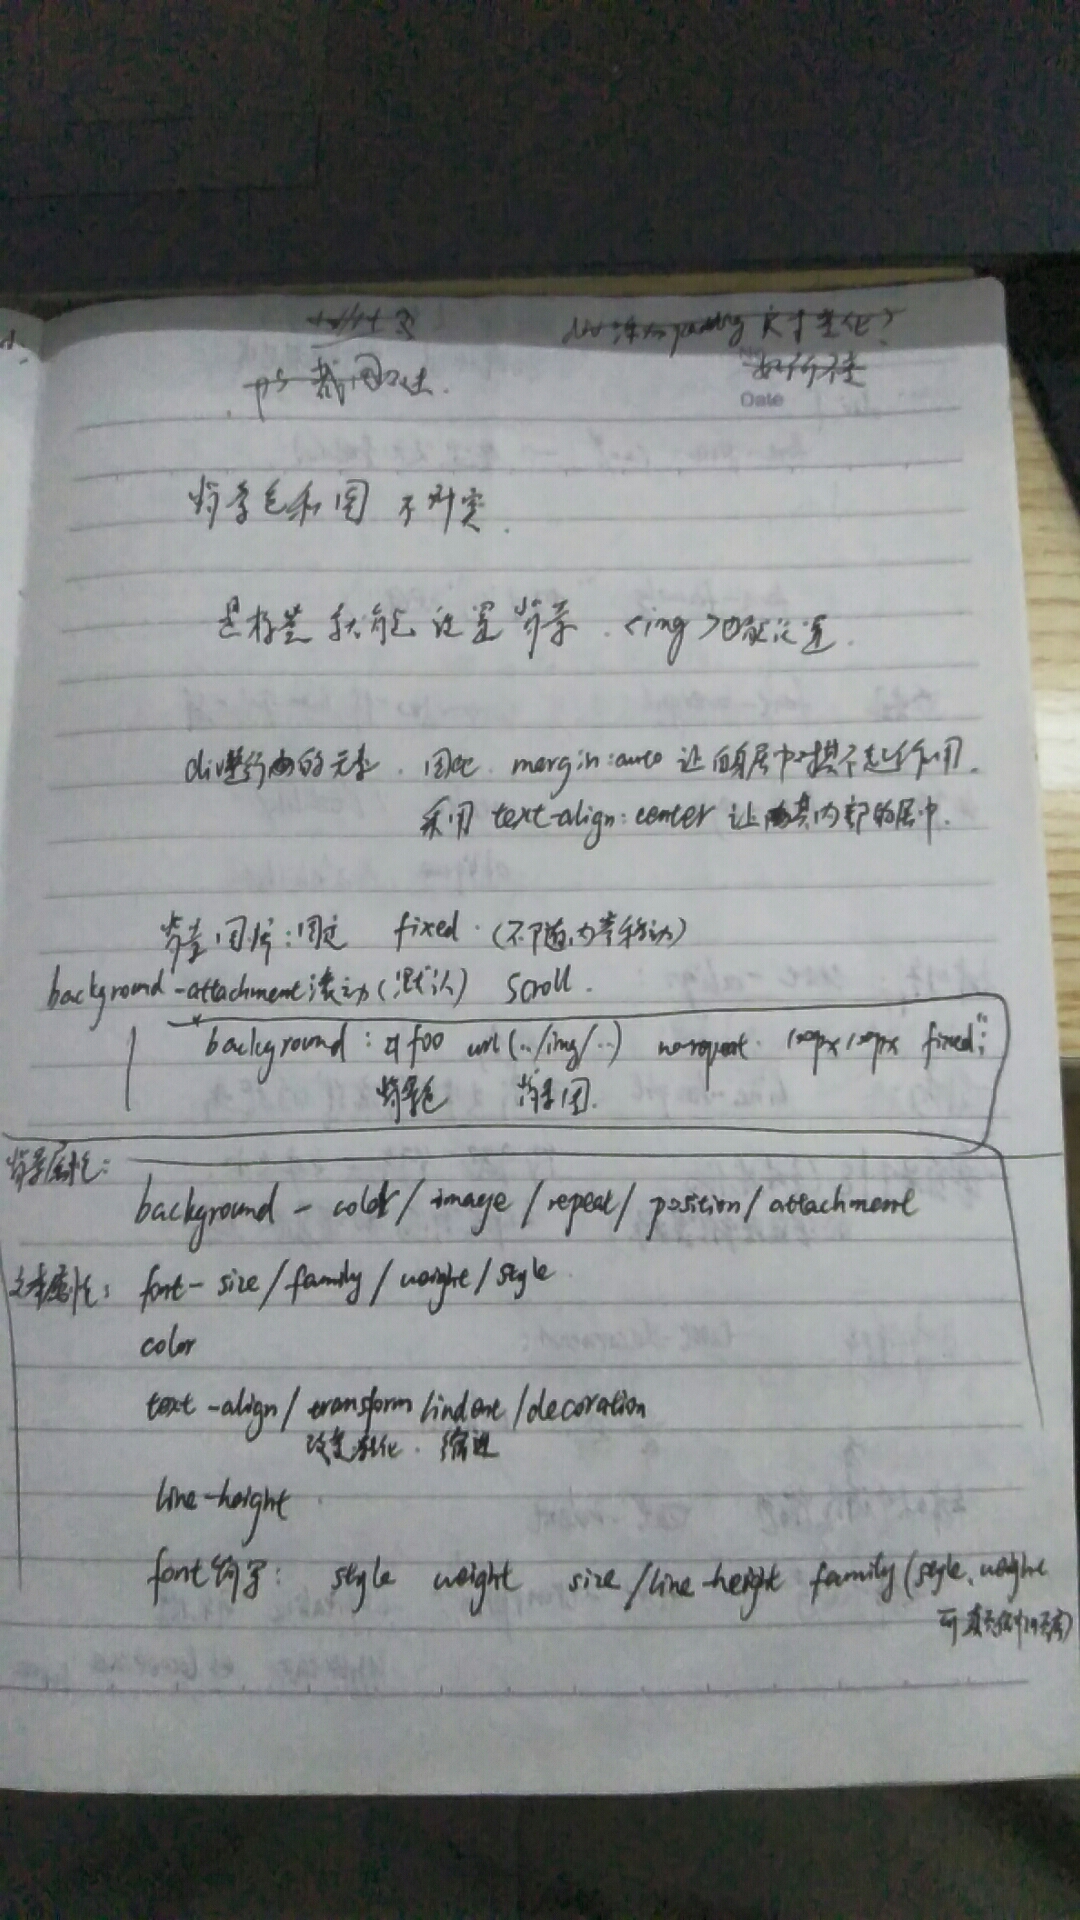 div 添加 padding 大小变化?
ps 截图
Date
背景色和图 不冲突.
是标签就能设置背景. <img>也能设置.
div 的元素. 因此 margin:auto 让自身居中对其不起作用.
采用 text-align:center 让其内部的居中.
背景图片:固定 fixed. (不随内容移动)
background-attachment 滚动(默认) scroll.
"background: #f00 url(../img/..) no-repeat 100px 100px fixed;"
背景色 背景图.
背景属性:
background - color / image / repeat / position / attachment
文本属性: font - size / family / weight / style
color
text - align / transform / indent / decoration
改变 缩进
line-height
font 简写: style weight size / line-height family (style, weight
可